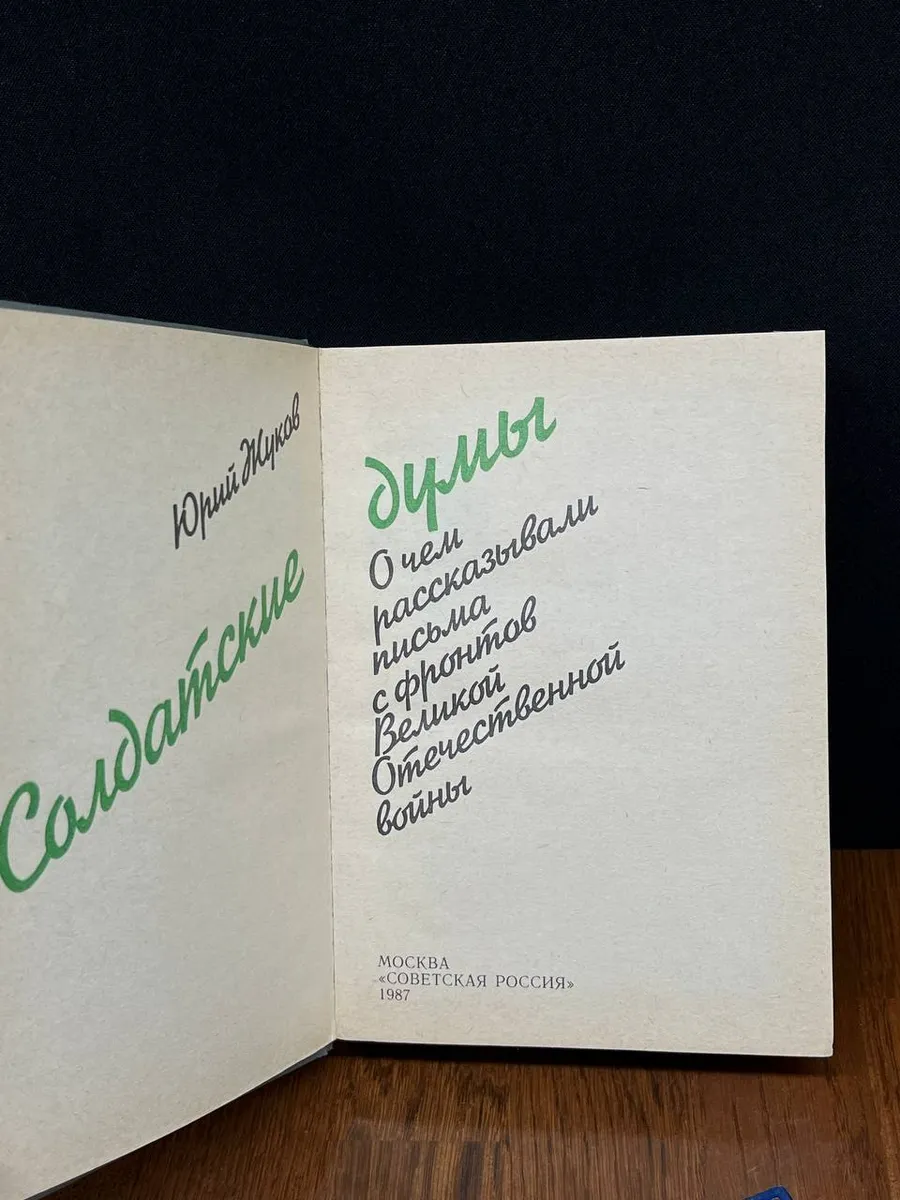 Юрий Жуков
Солдатские
думы
О чем
рассказывали
письма
с фронтов
Великой
Отечественной
войны
МОСКВА
«СОВЕТСКАЯ РОССИЯ»
1987